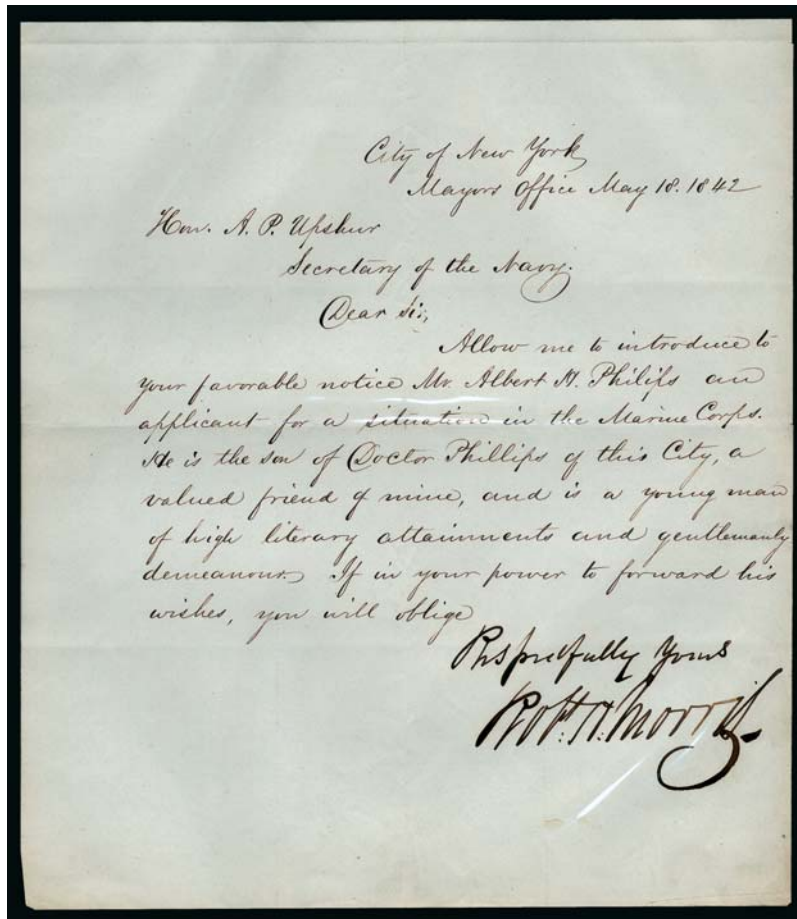 City of New York
Mayors Office May 18. 1842
Hon. A. P. Upshur
Secretary of the Navy.
Dear Sir,
Allow me to introduce to
your favorable notice Mr. Albert H. Philips an
applicant for a situation in the Marine Corps.
He is the son of Doctor Phillips of this City, a
valued friend of mine, and is a young man
of high literary attainments and gentlemanly
demeanour. If in your power to forward his
wishes, you will oblige
Respectfully Yours
Robt. H. Morris